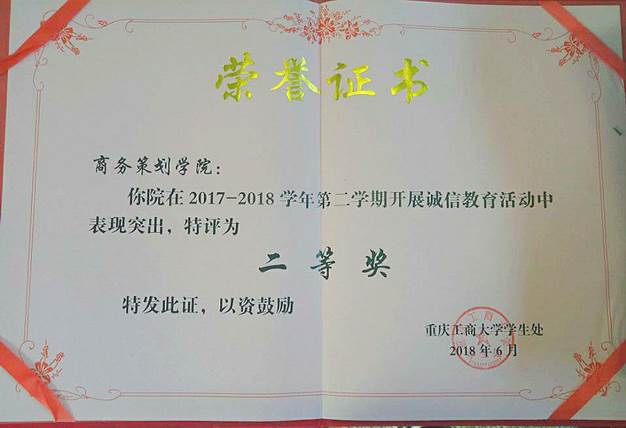 荣誉证书
商务策划学院：
你院在2017-2018学年第二学期开展诚信教育活动中
表现突出，特评为
二等奖
特发此证，以资鼓励
重庆工商大学学生处
2018年6月